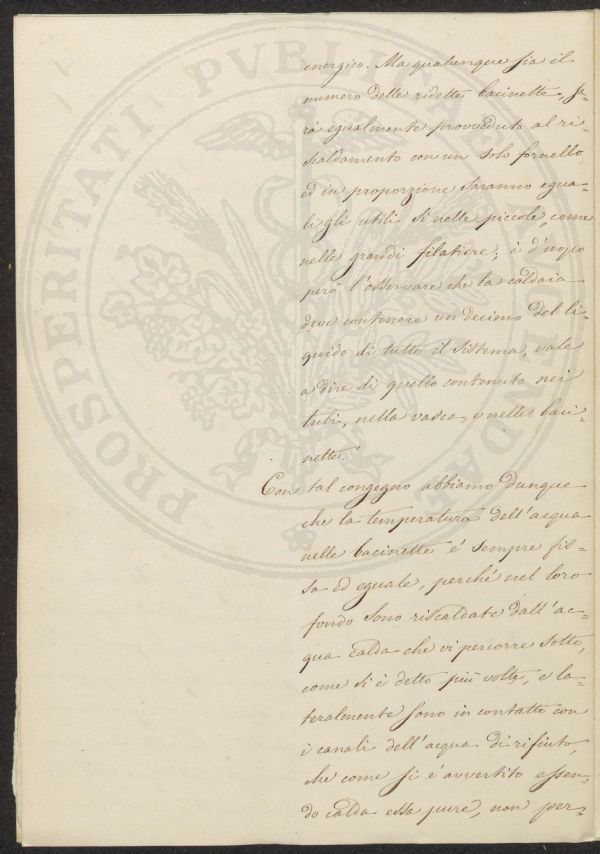 energico. Ma qualunque sia il
numero delle ridette bacinette, sa-
rà egualmente provveduto al ri-
scaldamento con un solo fornello,
ed in proporzione saranno egua-
li gli utili sì nelle piccole, come
nelle grandi filatiere; è d'uopo
però l'osservare che la caldaia
deve contenere un decimo del li-
quido di tutto il sistema, vale
a dire di quello contenuto nei
tubi, nella vasca, e nelle baci-
nette.
Con tal congegno abbiamo dunque
che la temperatura dell'acqua
nelle bacinette è sempre fis-
sa ed eguale, perché nel loro
fondo sono riscaldate dall'ac-
qua calda che vi percorre sotto,
come si è detto più volte, e la-
teralmente sono in contatto con
i canali dell'acqua di rifiuto,
che come si è avvertito essen-
do calda essa pure, non per-
PROSPERITATI PVBLICAE